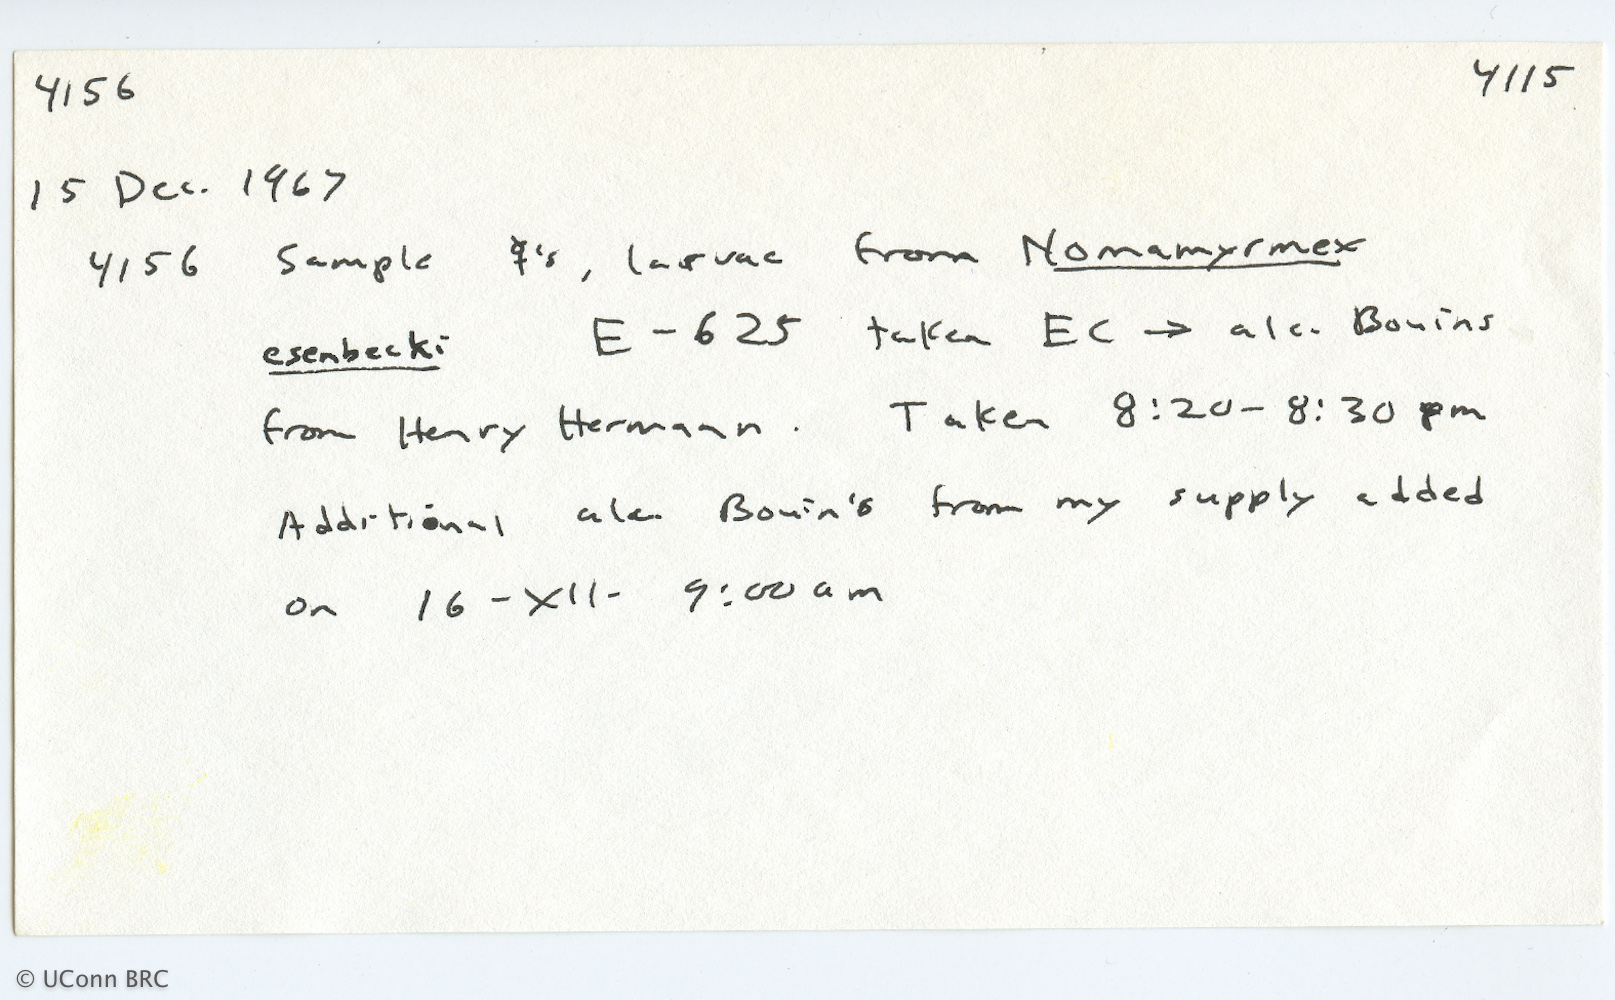 4156 4115
15 Dec. 1967
4156 Sample ☿'s, larvae from Nomamyrmex
esenbecki E-625 taken EC → alc. Bouins
from Henry Hermann. Taken 8:20-8:30 pm
Additional alc. Bouin's from my supply added
on 16-XII- 9:00 am
© UConn BRC